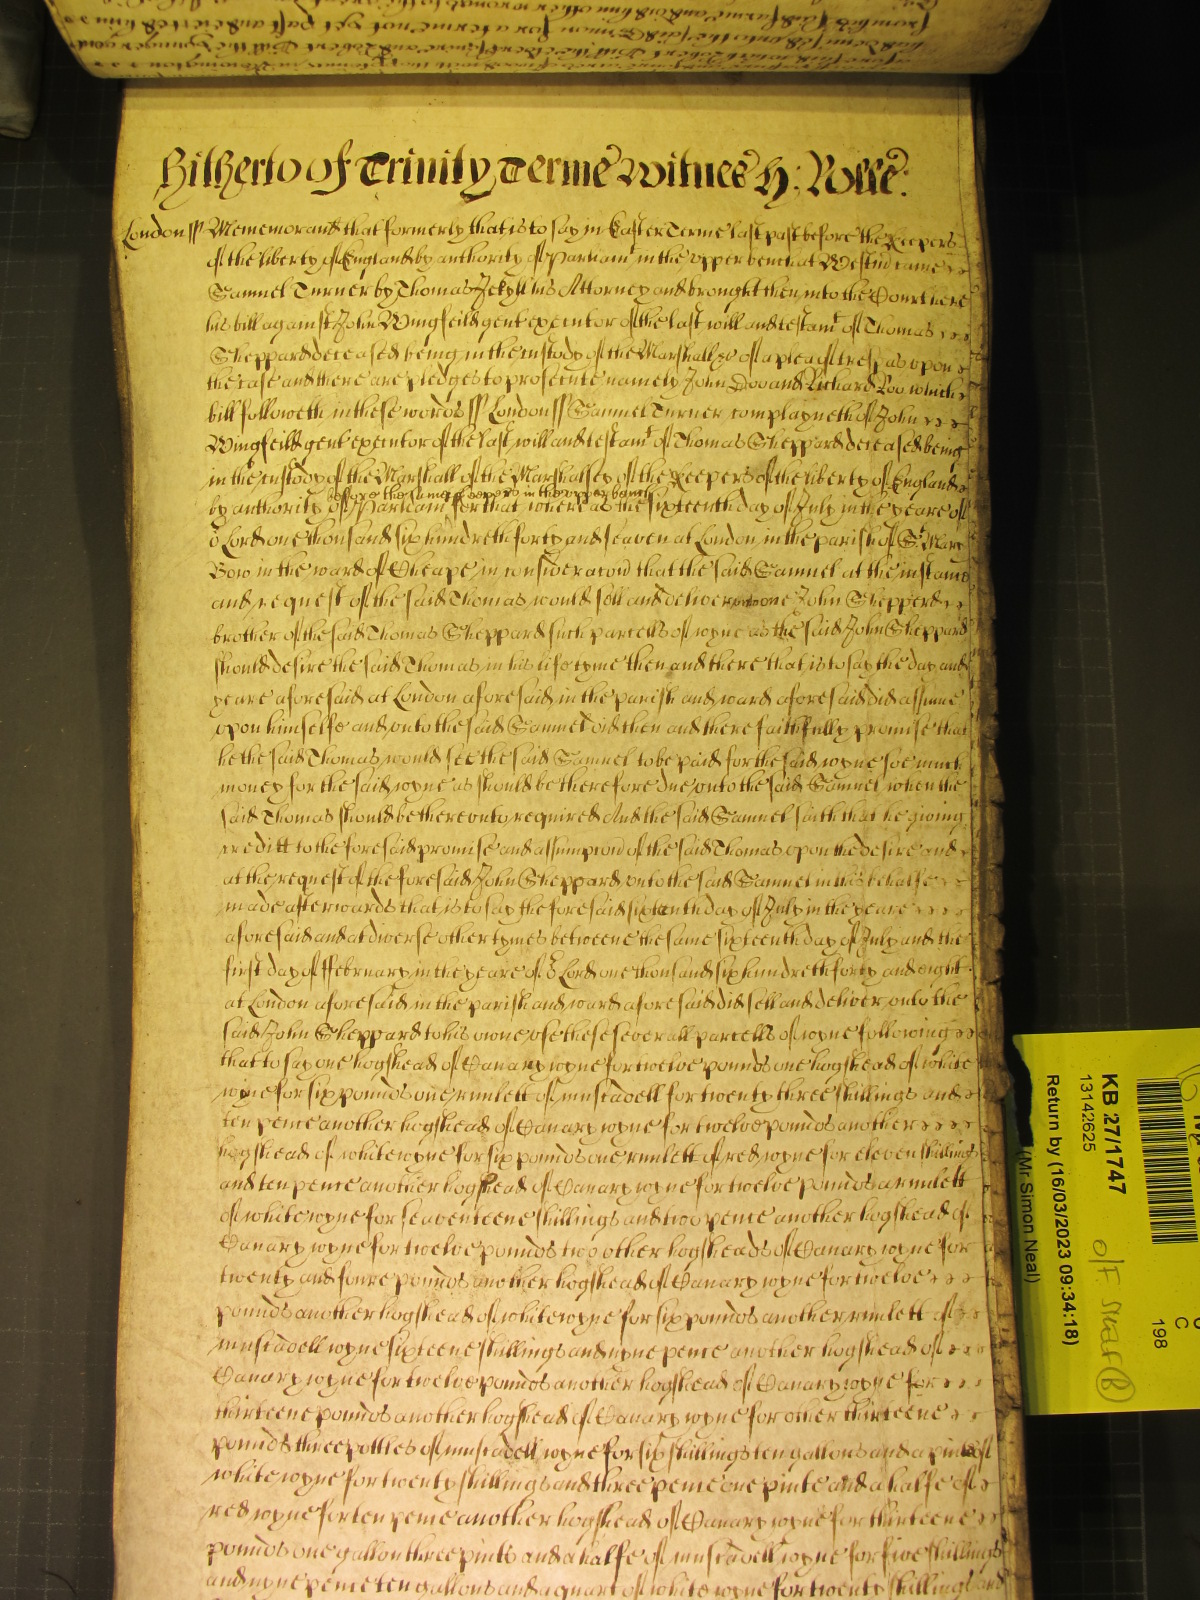 Hitherto of Trinity Terme Witnes H: Rolle:
London ss Mememorand that formerly that is to say in Easter Terme last past before the Keepers
of the liberty of England by authority of Parliamt in the upper bench at Westm came
Samuel Turner by Thomas Jekyll his Attorney and brought then into the Court here
his bill against John Wingfeild gent executor of the last will and testamt of Thomas
Sheppard deceased being in the custody of the Marshall &c of a plea of trespas upon
the case and there are pledges to prosecute namely John Doo and Richard Roo which
bill followeth in these words ss London ss Samuel Turner complayneth of John
Wingfeild gent executor of the last will and testamt of Thomas Sheppard deceased being
in the custody of the Marshall of the Marshalsey of the Keepers of the liberty of England
before the same Keepers in the upper bench
by authority of Parliam for that whereas the sixteenth day of July in the yeare of
o Lord one thousand six hundreth forty and seaven at London in the parish of St Mary
Bow in the ward of Cheape in consideracon that the said Samuel at the instance
and request of the said Thomas would sell and deliver unto one John Shepperd
brother of the said Thomas Sheppard such parcells of wyne as the said John Sheppard
should desire the said Thomas in his life tyme then and there that is to say the day and
yeare aforesaid at London aforesaid in the parish and ward aforesaid did assume
upon himselfe and unto the said Samuel did then and there faithfully promise that
he the said Thomas would see the said Samuel to be paid for the said wyne soe much
money for the said wyne as should be therefore due unto the said Samuel when the
said Thomas should be thereunto required And the said Samuel saith that he giving
creditt to the foresaid promise and assumpcon of the said Thomas upon the desire and
at the request of the foresaid John Sheppard unto the said Samuel in this behalfe
made afterwards that is to say the foresaid sixteenth day of July in the yeare
aforesaid and at diverse other tymes betweene the same sixteenth day of July and the
first day of February in the yeare of o Lord one thousand six hundreth forty and eight
at London aforesaid in the parish and ward aforesaid did sell and deliver unto the
said John Sheppard to his owne use these severall parcells of wyne following
that to say one hogshead of Canary wyne for twelve pounds one hogshead of white
wyne for six pounds one runlett of muscadell for twenty three shillings and
ten pence another hogshead of Canary wyne for twelve pounds another
hogshead of white wyne for six pounds one runlett of red wyne for eleven shillings
and ten pence another hogshead of Canary wyne for twelve pounds a runlett
of white wyne for seaventeene shillings and two pence another hogshead of
Canary wyne for twelve pounds two other hogsheads of Canary wyne for
twenty and foure pounds another hogshead of Canary wyne for twelve
pounds another hogshead of white wyne for six pounds another runlett of
muscadell wyne sixteene shillings and nyne pence another hogshead of
Canary wyne for twelve pounds another hogshead of Canary wyne for
thirteene pounds another hogshead of Canary wyne for other thirteene
pounds three pottles of muscadell wyne for six shillings ten gallons and a pinte of
white wyne for twenty shillings and three pence one pinte and a halfe of
red wyne for ten pence another hogshead of Canary wyne for thirteene
pounds one gallon three pints and a halfe of muscadell wyne for five shillings
and nyne pence ten gallons and a quart of white wyne for twenty shillings and
KB 27/1747
13142625
Return by (16/03/2023 09:34:18)
(Mr Simon Neal)
C
198